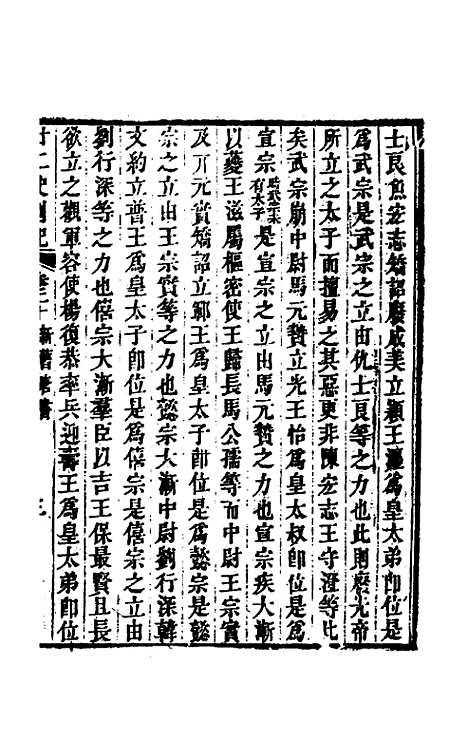 士良魚宏志矯詔廢成美立潁王瀍爲皇太弟卽位是
爲武宗是武宗之立由仇士良等之力也此則廢先帝
所立之太子而擅易之其惡更非陳宏志王守澄等比
矣武宗崩中尉馬元贄立光王怡爲皇太叔卽位是爲
宣宗時武宗未有太子是宣宗之立出馬元贄之力也宣宗疾大漸
以夔王滋屬樞密使王歸長馬公孺等而中尉王宗實
及丌元實矯詔立鄆王爲皇太子卽位是爲懿宗是懿
宗之立由王宗實等之力也懿宗大漸中尉劉行深韓
文約立普王爲皇太子卽位是爲僖宗是僖宗之立由
劉行深等之力也僖宗大漸羣臣以吉王保最賢且長
欲立之觀軍容使楊復恭率兵迎壽王爲皇太弟卽位
廿二史劄記 卷二十 新舊唐書 三